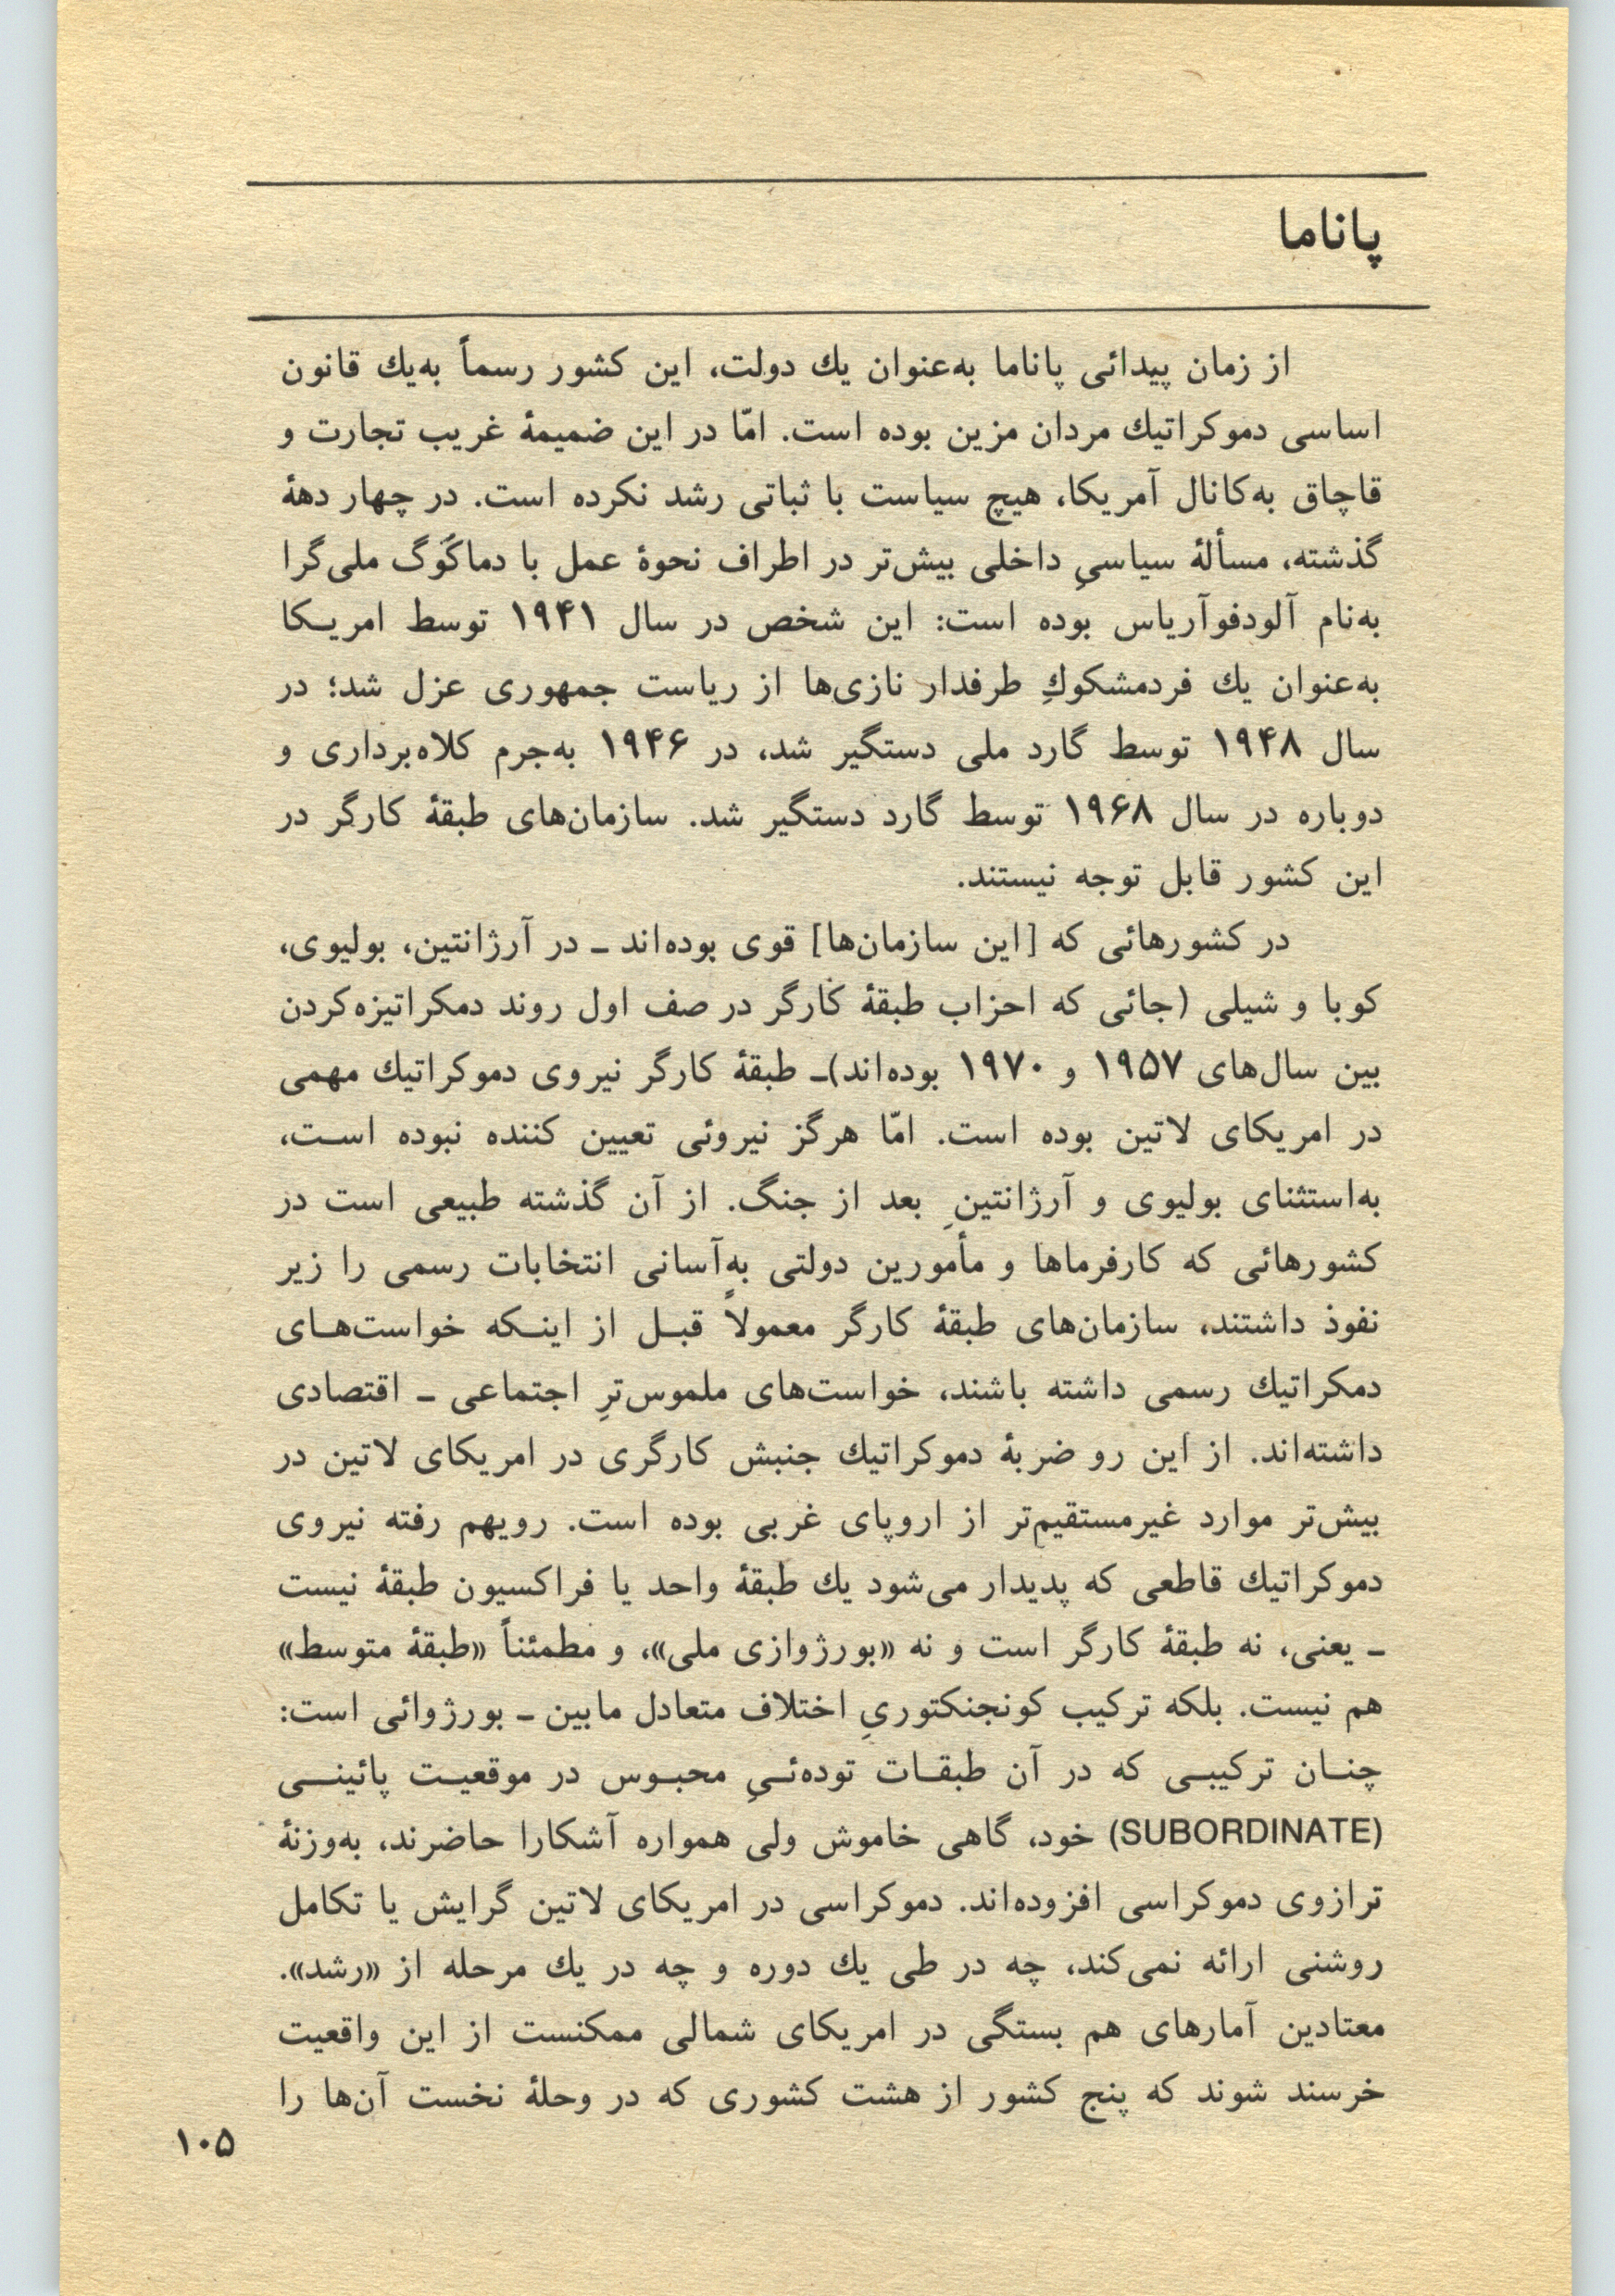 پاناما
از زمان پیدائی پاناما به‌عنوان یك دولت، این کشور رسماً به‌یك قانون
اساسی دموکراتیك مردان مزین بوده است. امّا در این ضمیمهٔ غریب تجارت و
قاچاق به‌کانال آمریکا، هیچ سیاست با ثباتی رشد نکرده است. در چهار دههٔ
گذشته، مسألهٔ سیاسیِ داخلی بیش‌تر در اطراف نحوهٔ عمل با دماگوگ ملی‌گرا
به‌نام آلودفوآریاس بوده است: این شخص در سال ۱۹۴۱ توسط امریکا
به‌عنوان یك فردمشکوكِ طرفدار نازی‌ها از ریاست جمهوری عزل شد؛ در
سال ۱۹۴۸ توسط گارد ملی دستگیر شد، در ۱۹۴۶ به‌جرم کلاه‌برداری و
دوباره در سال ۱۹۶۸ توسط گارد دستگیر شد. سازمان‌های طبقهٔ کارگر در
این کشور قابل توجه نیستند.
در کشورهائی که [این سازمان‌ها] قوی بوده‌اند ـ در آرژانتین، بولیوی،
کوبا و شیلی (جائی که احزاب طبقهٔ کارگر در صف اول روند دمکراتیزه‌کردن
بین سال‌های ۱۹۵۷ و ۱۹۷۰ بوده‌اند)ـ طبقهٔ کارگر نیروی دموکراتیك مهمی
در امریکای لاتین بوده است. امّا هرگز نیروئی تعیین کننده نبوده است،
به‌استثنای بولیوی و آرژانتینِ بعد از جنگ. از آن گذشته طبیعی است در
کشورهائی که کارفرماها و مأمورین دولتی به‌آسانی انتخابات رسمی را زیر
نفوذ داشتند، سازمان‌های طبقهٔ کارگر معمولاً قبل از اینکه خواست‌های
دمکراتیك رسمی داشته باشند، خواست‌های ملموس‌ترِ اجتماعی ـ اقتصادی
داشته‌اند. از این رو ضربهٔ دموکراتیك جنبش کارگری در امریکای لاتین در
بیش‌تر موارد غیرمستقیم‌تر از اروپای غربی بوده است. رویهم رفته نیروی
دموکراتیك قاطعی که پدیدار می‌شود یك طبقهٔ واحد یا فراکسیون طبقهٔ نیست
ـ یعنی، نه طبقهٔ کارگر است و نه «بورژوازی ملی»، و مطمئناً «طبقهٔ متوسط»
هم نیست. بلکه ترکیب کونجنکتوریِ اختلاف متعادل مابین ـ بورژوائی است:
چنان ترکیبی که در آن طبقات توده‌ئیِ محبوس در موقعیت پائینی
(SUBORDINATE) خود، گاهی خاموش ولی همواره آشکارا حاضرند، به‌وزنهٔ
ترازوی دموکراسی افزوده‌اند. دموکراسی در امریکای لاتین گرایش یا تکامل
روشنی ارائه نمی‌کند، چه در طی یك دوره و چه در یك مرحله از «رشد».
معتادین آمارهای هم بستگی در امریکای شمالی ممکنست از این واقعیت
خرسند شوند که پنج کشور از هشت کشوری که در وحلهٔ نخست آن‌ها را
۱۰۵